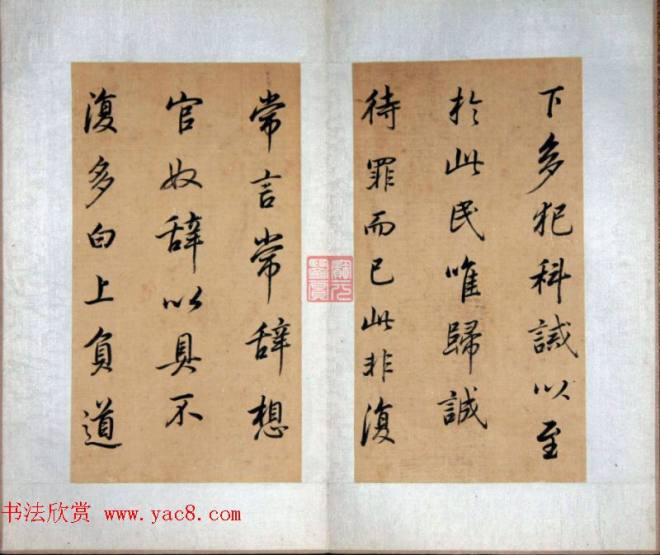 下多犯科誡以至
於此民唯歸誠
待罪而已此非復
常言常辞想
官奴辞以具不
復多白上負道
书法欣赏 www.yac8.com